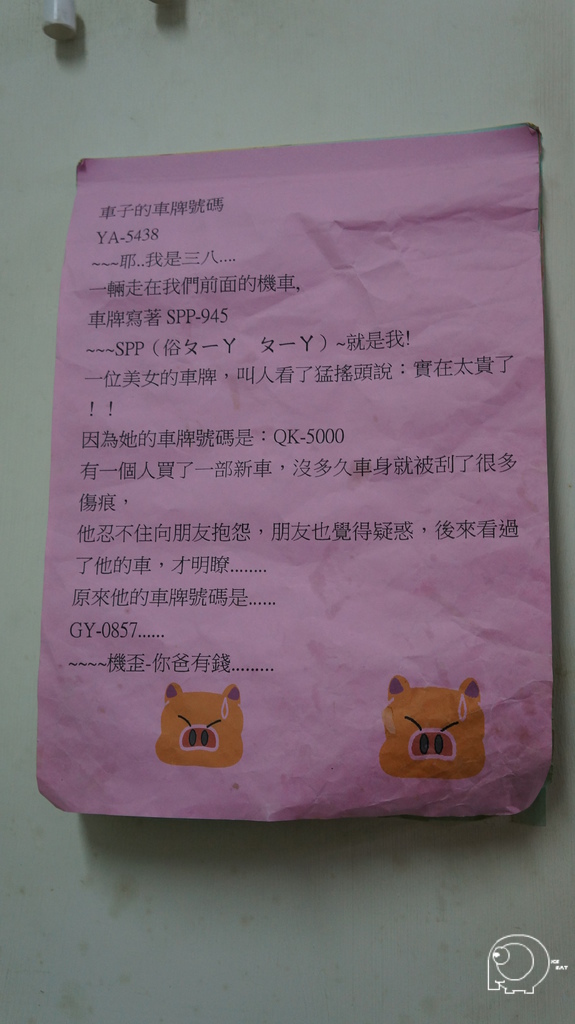 車子的車牌號碼
YA-5438
~~~耶..我是三八....
一輛走在我們前面的機車,
車牌寫著 SPP-945
~~~SPP（俗ㄆㄧㄚ　ㄆㄧㄚ）~就是我!
一位美女的車牌，叫人看了猛搖頭說：實在太貴了
！！
因為她的車牌號碼是：QK-5000
有一個人買了一部新車，沒多久車身就被刮了很多
傷痕，
他忍不住向朋友抱怨，朋友也覺得疑惑，後來看過
了他的車，才明瞭........
原來他的車牌號碼是......
GY-0857......
~~~~機歪-你爸有錢.........
ICE
EAT